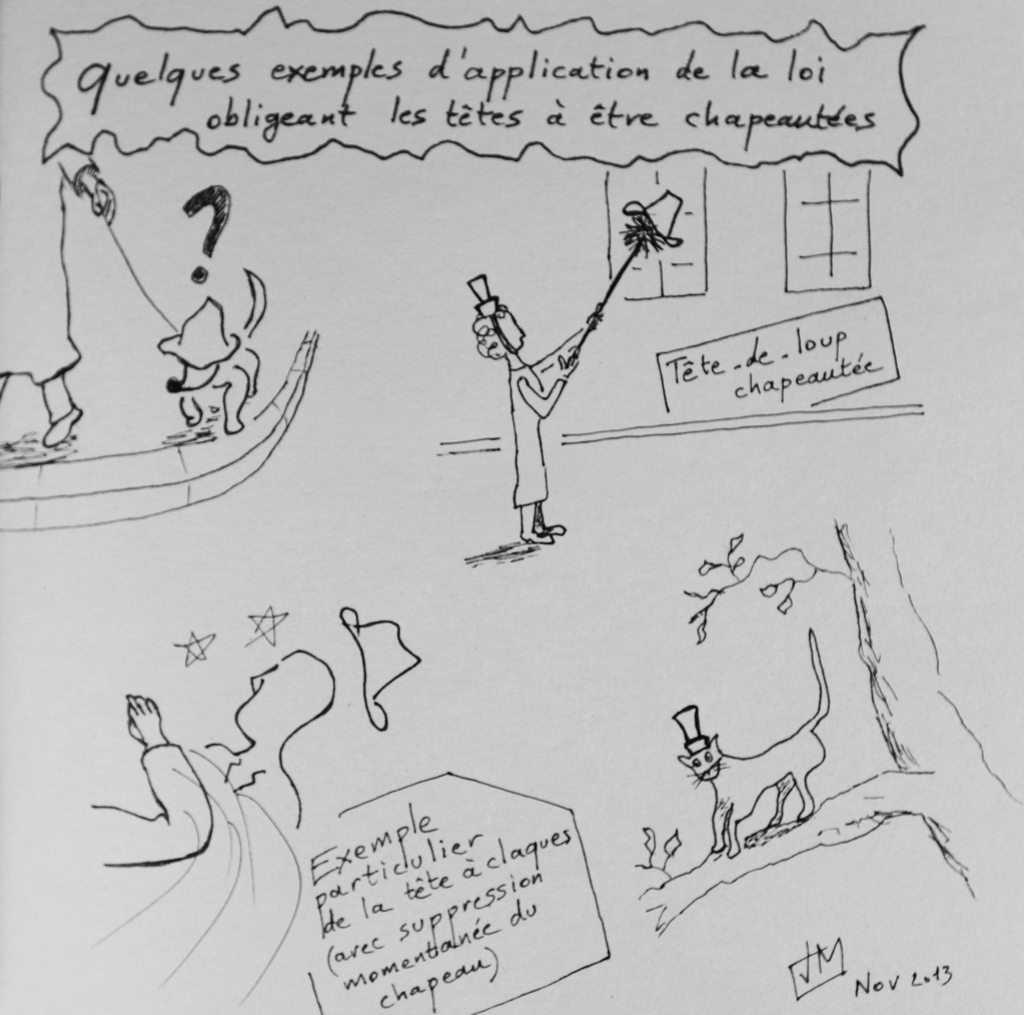 Quelques exemples d'application de la loi
obligeant les têtes à être chapeautées
?
Tête-de-loup
chapeautée
Exemple
particulier
de la tête à claques
(avec suppression
momentanée du
chapeau)
JM
Nov 2013